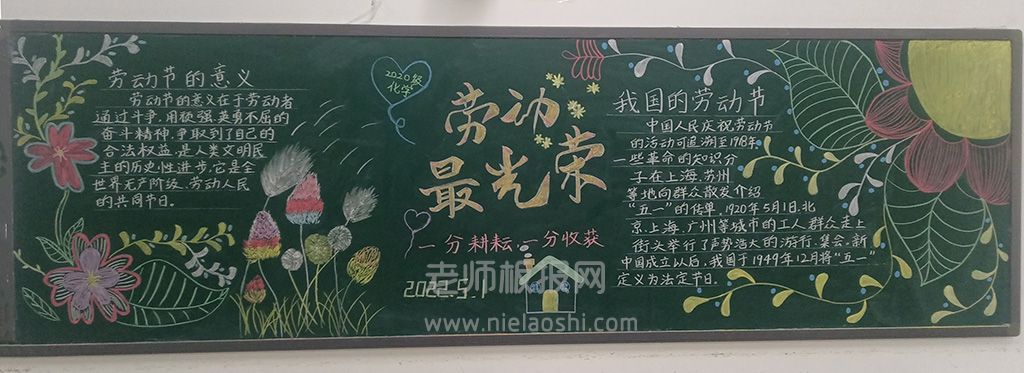 劳动节的意义
劳动节的意义在于劳动者
通过斗争,用顽强,英勇不屈的
奋斗精神,争取到了自己的
合法权益.是人类文明民
主的历史性进步,它是全
世界无产阶级、劳动人民
的共同节日。
2020级
化学
劳动
最光荣
一分耕耘,一分收获
2022.5.1
老师板报网
www.nielaoshi.com
我国的劳动节
中国人民庆祝劳动节
的活动可追溯至1918年
一些革命的知识分
子在上海,苏州
等地向群众散发介绍
“五一”的传单.1920年5月1日,北
京,上海,广州等城市的工人群众走上
街头举行了声势浩大的游行,集会.新
中国成立以后,我国于1949年12月将“五一”
定义为法定节日。